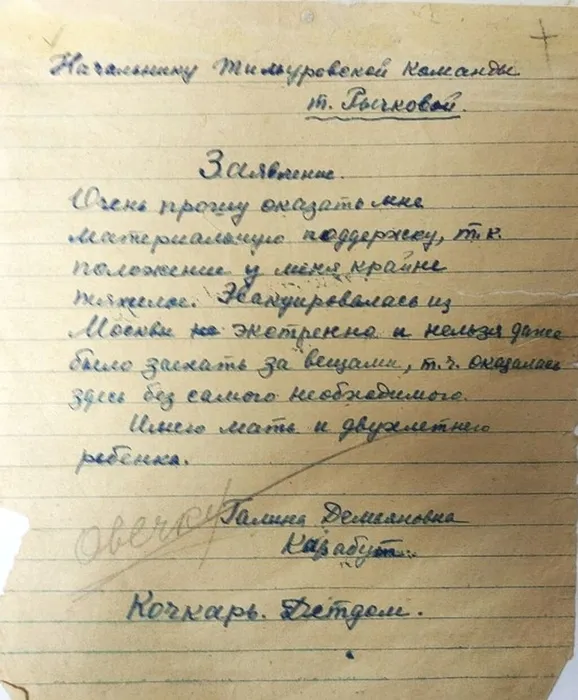 Начальнику Тимуровской команды
т. Рычковой.
Заявление.
Очень прошу оказать мне
материальную поддержку, т.к.
положение у меня крайне
тяжелое. Эвакуировалась из
Москвы экстренно и нельзя даже
было заехать за вещами, т.ч. оказалась
здесь без самого необходимого.
Имею мать и двухлетнего
ребенка.
Галина Демьяновна
Карабут
Кочкарь. Детдом.